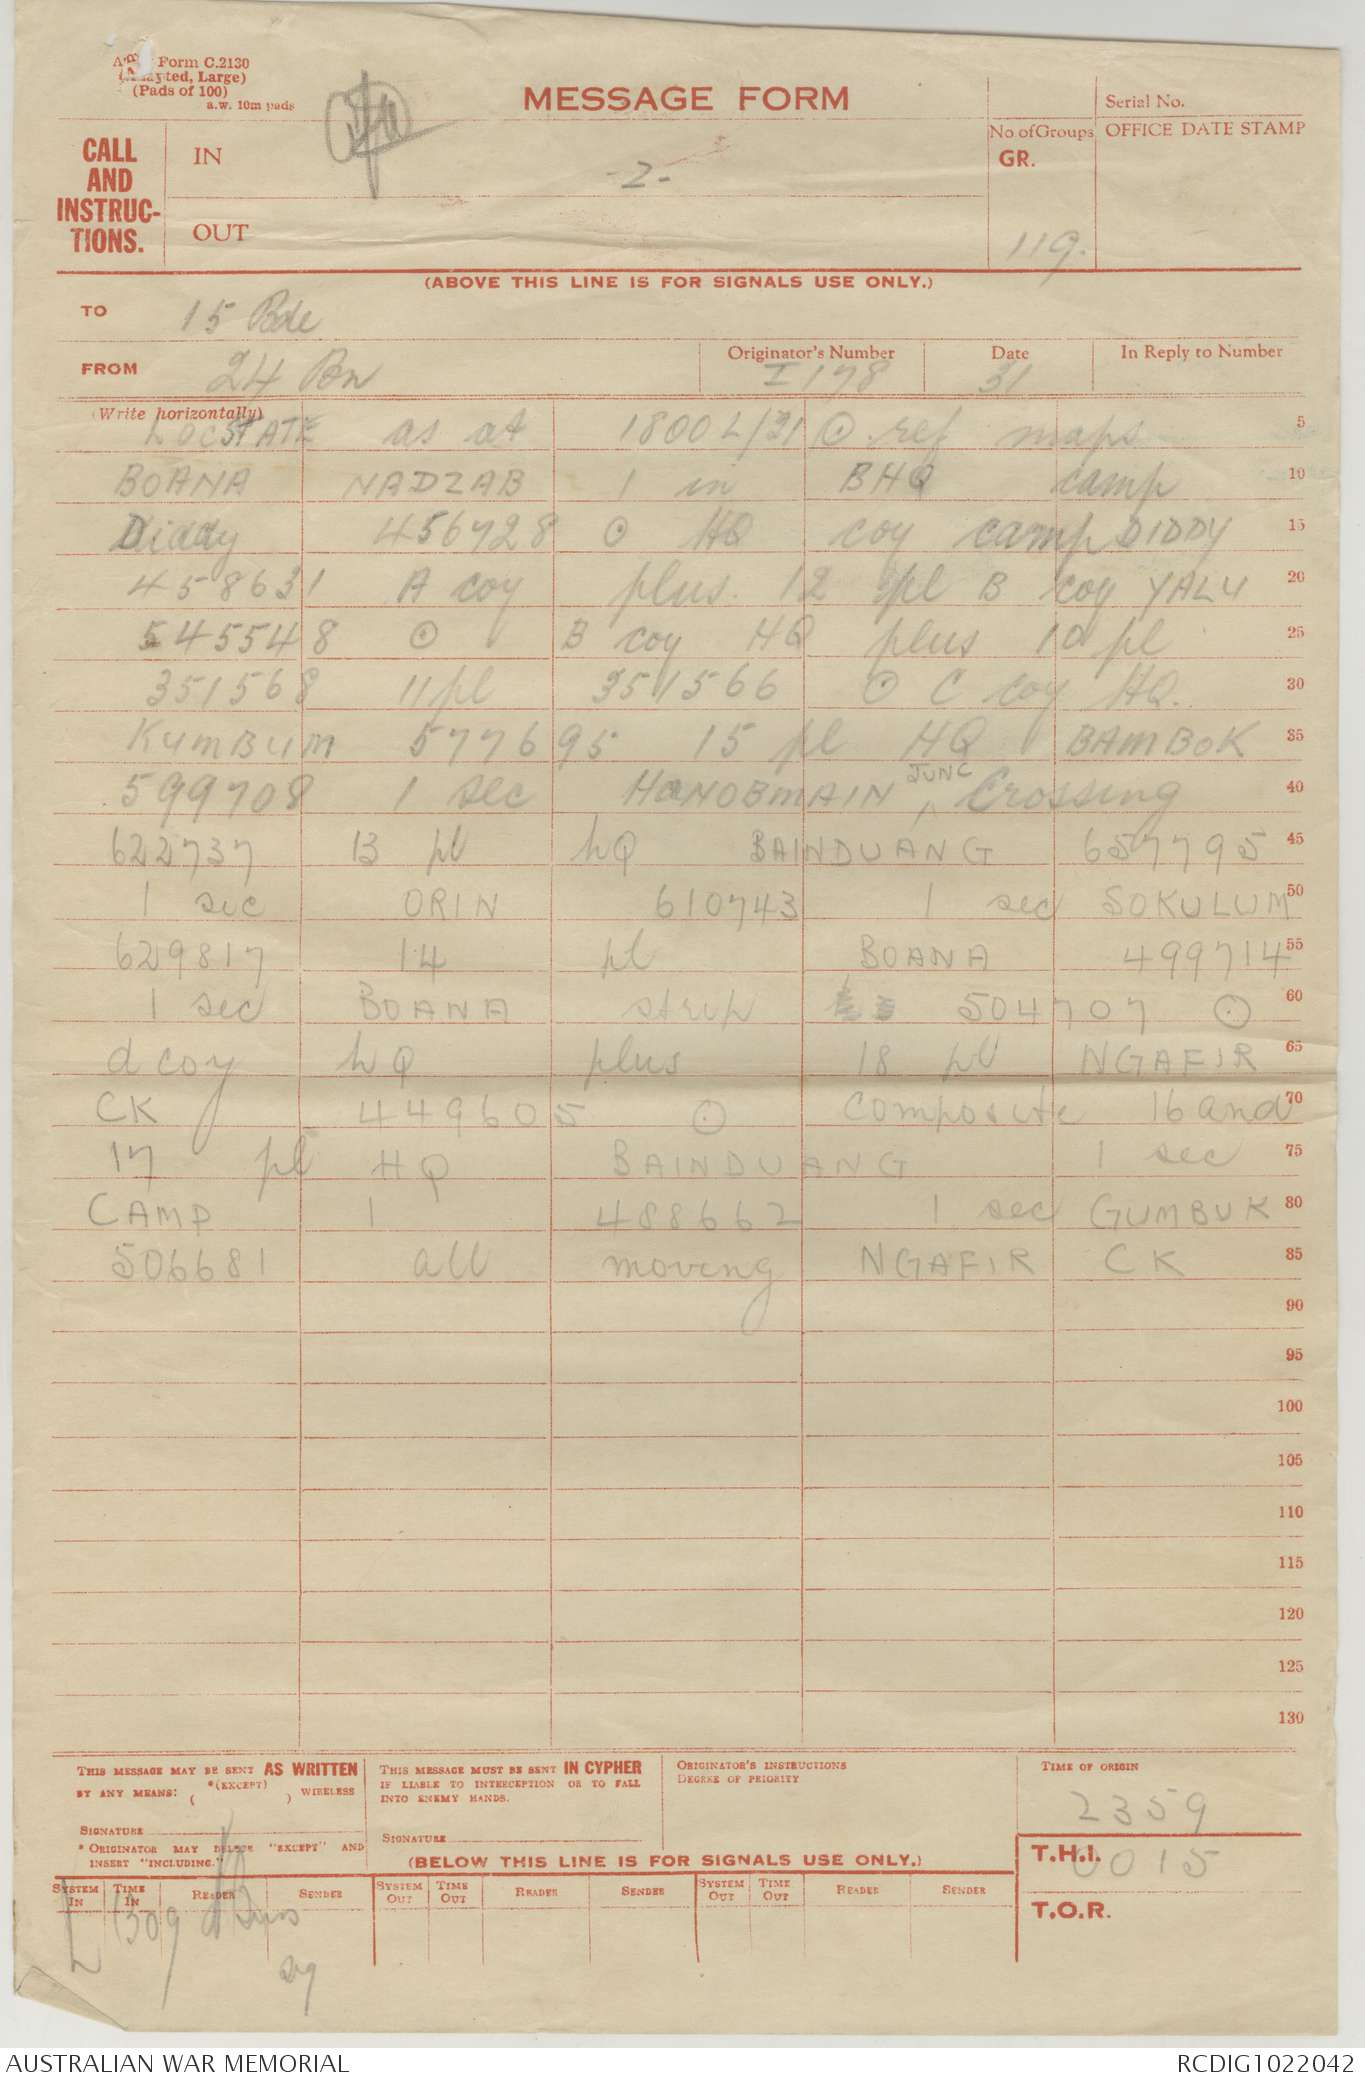 Form C.2130
(Adapted, Large)
(Pads of 100)
a.w. 10m pads
MESSAGE FORM
Serial No.
CALL
AND
INSTRUC-
TIONS.
IN
OUT
-2-
No. of Groups
GR.
119.
OFFICE DATE STAMP
(ABOVE THIS LINE IS FOR SIGNALS USE ONLY.)
TO 15 Bde
FROM 24 Bn
Originator's Number I 178
Date 31
In Reply to Number
(Write horizontally)
LOCSTATE as at 1800L/31 ⊙ ref maps 5
BOANA NADZAB 1 in BHQ camp 10
Diddy 456728 ⊙ HQ coy camp DIDDY 15
458631 A coy plus 12 pl B coy YALU 20
545548 ⊙ B coy HQ plus 10 pl 25
351568 11 pl 351566 ⊙ C coy HQ 30
KUMBUM 577695 15 pl HQ BAMBOK 35
599708 1 sec HONOBMAIN JUNC Crossing 40
622737 13 pl hQ BAINDUANG 657795 45
1 sec ORIN 610743 1 sec SOKULUM 50
629817 14 pl BOANA 499714 55
1 sec BOANA strip 504707 ⊙ 60
d coy hQ plus 18 pl NGAFIR 65
CK 449605 ⊙ composite 16 and 70
17 pl HQ BAINDUANG 1 sec 75
CAMP 1 488662 1 sec GUMBUK 80
506681 all moving NGAFIR CK 85
90
95
100
105
110
115
120
125
130
THIS MESSAGE MAY BE SENT AS WRITTEN
BY ANY MEANS: *(EXCEPT) ( ) WIRELESS
SIGNATURE
* ORIGINATOR MAY DELETE "EXCEPT" AND
INSERT "INCLUDING."
THIS MESSAGE MUST BE SENT IN CYPHER
IF LIABLE TO INTERCEPTION OR TO FALL
INTO ENEMY HANDS.
SIGNATURE
ORIGINATOR'S INSTRUCTIONS
DEGREE OF PRIORITY
TIME OF ORIGIN
2359
(BELOW THIS LINE IS FOR SIGNALS USE ONLY.)
T.H.I. 0015
SYSTEM IN TIME IN READER SENDER SYSTEM OUT TIME OUT READER SENDER SYSTEM OUT TIME OUT READER SENDER
T.O.R.
AUSTRALIAN WAR MEMORIAL
RCDIG1022042